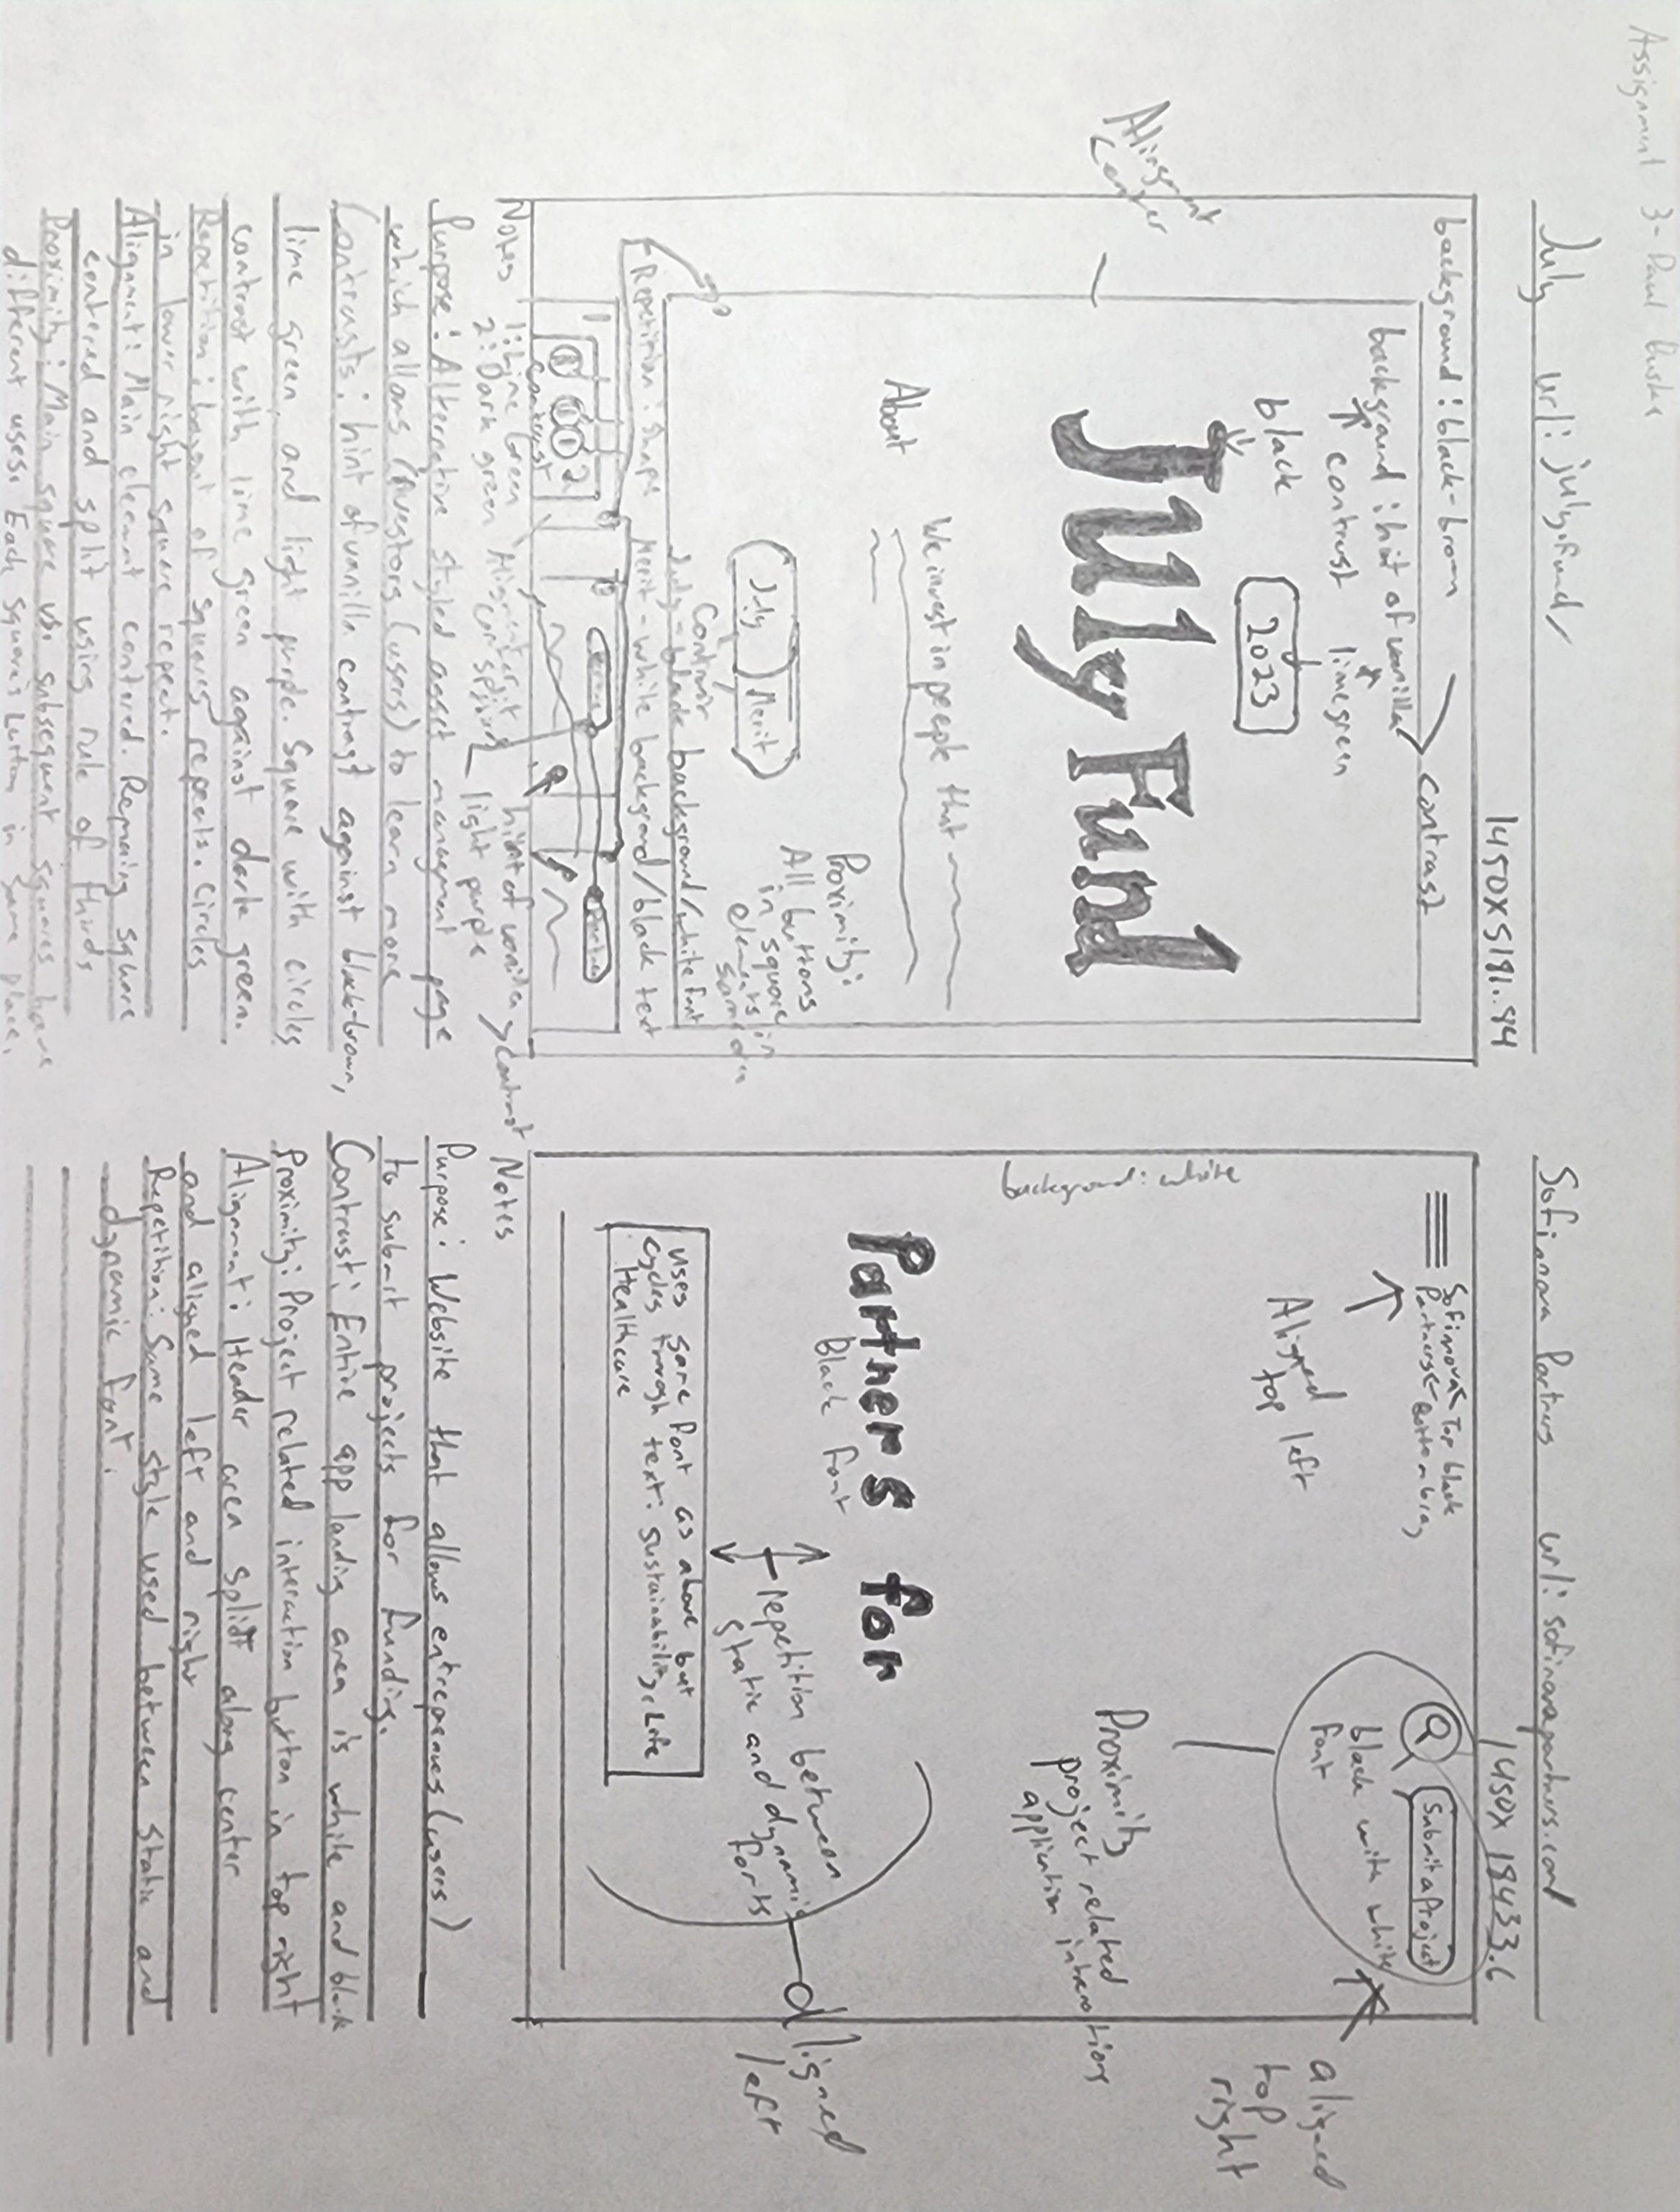 Assignment 3- Paul
July url: july.fund/
1450x5181.84
background : black-brown
contrast
background : hint of vanilla
contrast
limegreen
black
2023
July Fund
Alingment
center
About
We invest in people that
Proximity:
All buttons
in square
elements in
same area
July Merit
July - black background/white font
Repetition : shape
Merit - white background/black text
1
2
Contrast
Notes
1: Lime Green
2: Dark green
hint of vanilla
light purple
contrast
Purpose: Alternative styled asset managment page
which allows investors (users) to learn more
Contrasts: hint of vanilla contrast against black-brown,
lime green, and light purple. Square with circles
contrast with lime green against dark green.
Repetition: Layout of squares repeats. Circles
in lower right square repeat.
Alignment: Main element centered. Remaing square
centered and split using rule of thirds
Proximity: Main square vs. subsequent squares have
different uses. Each square's button in same place.
Sofinnova Partners url: sofinovapartners.com/
1450x 18433.6
Sofinnova Top black
Partners Bottom Gray
Aligned
top left
Submit a Project
black with white
font
aligned
top
right
background: white
Proximity
project related
application interactions
Partners for
Black Font
repetition between
static and dynamic
fonts
aligned
left
uses same font as above but
cycles through text: sustainability, Life
Healthcare
Notes
Purpose: Website that allows entrepenues (users)
to submit projects for funding.
Contrast: Entire app landing area is white and black
Proximity: Project related interaction button in top right
Alignment: Header area split along center
and aligned left and right
Repetition: Same style used between static and
dynamic font.